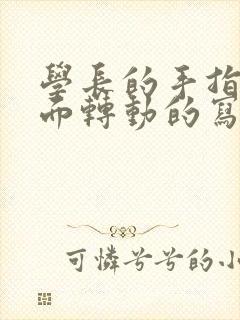 學長的手指
而轉動的寫
可憐兮兮的小